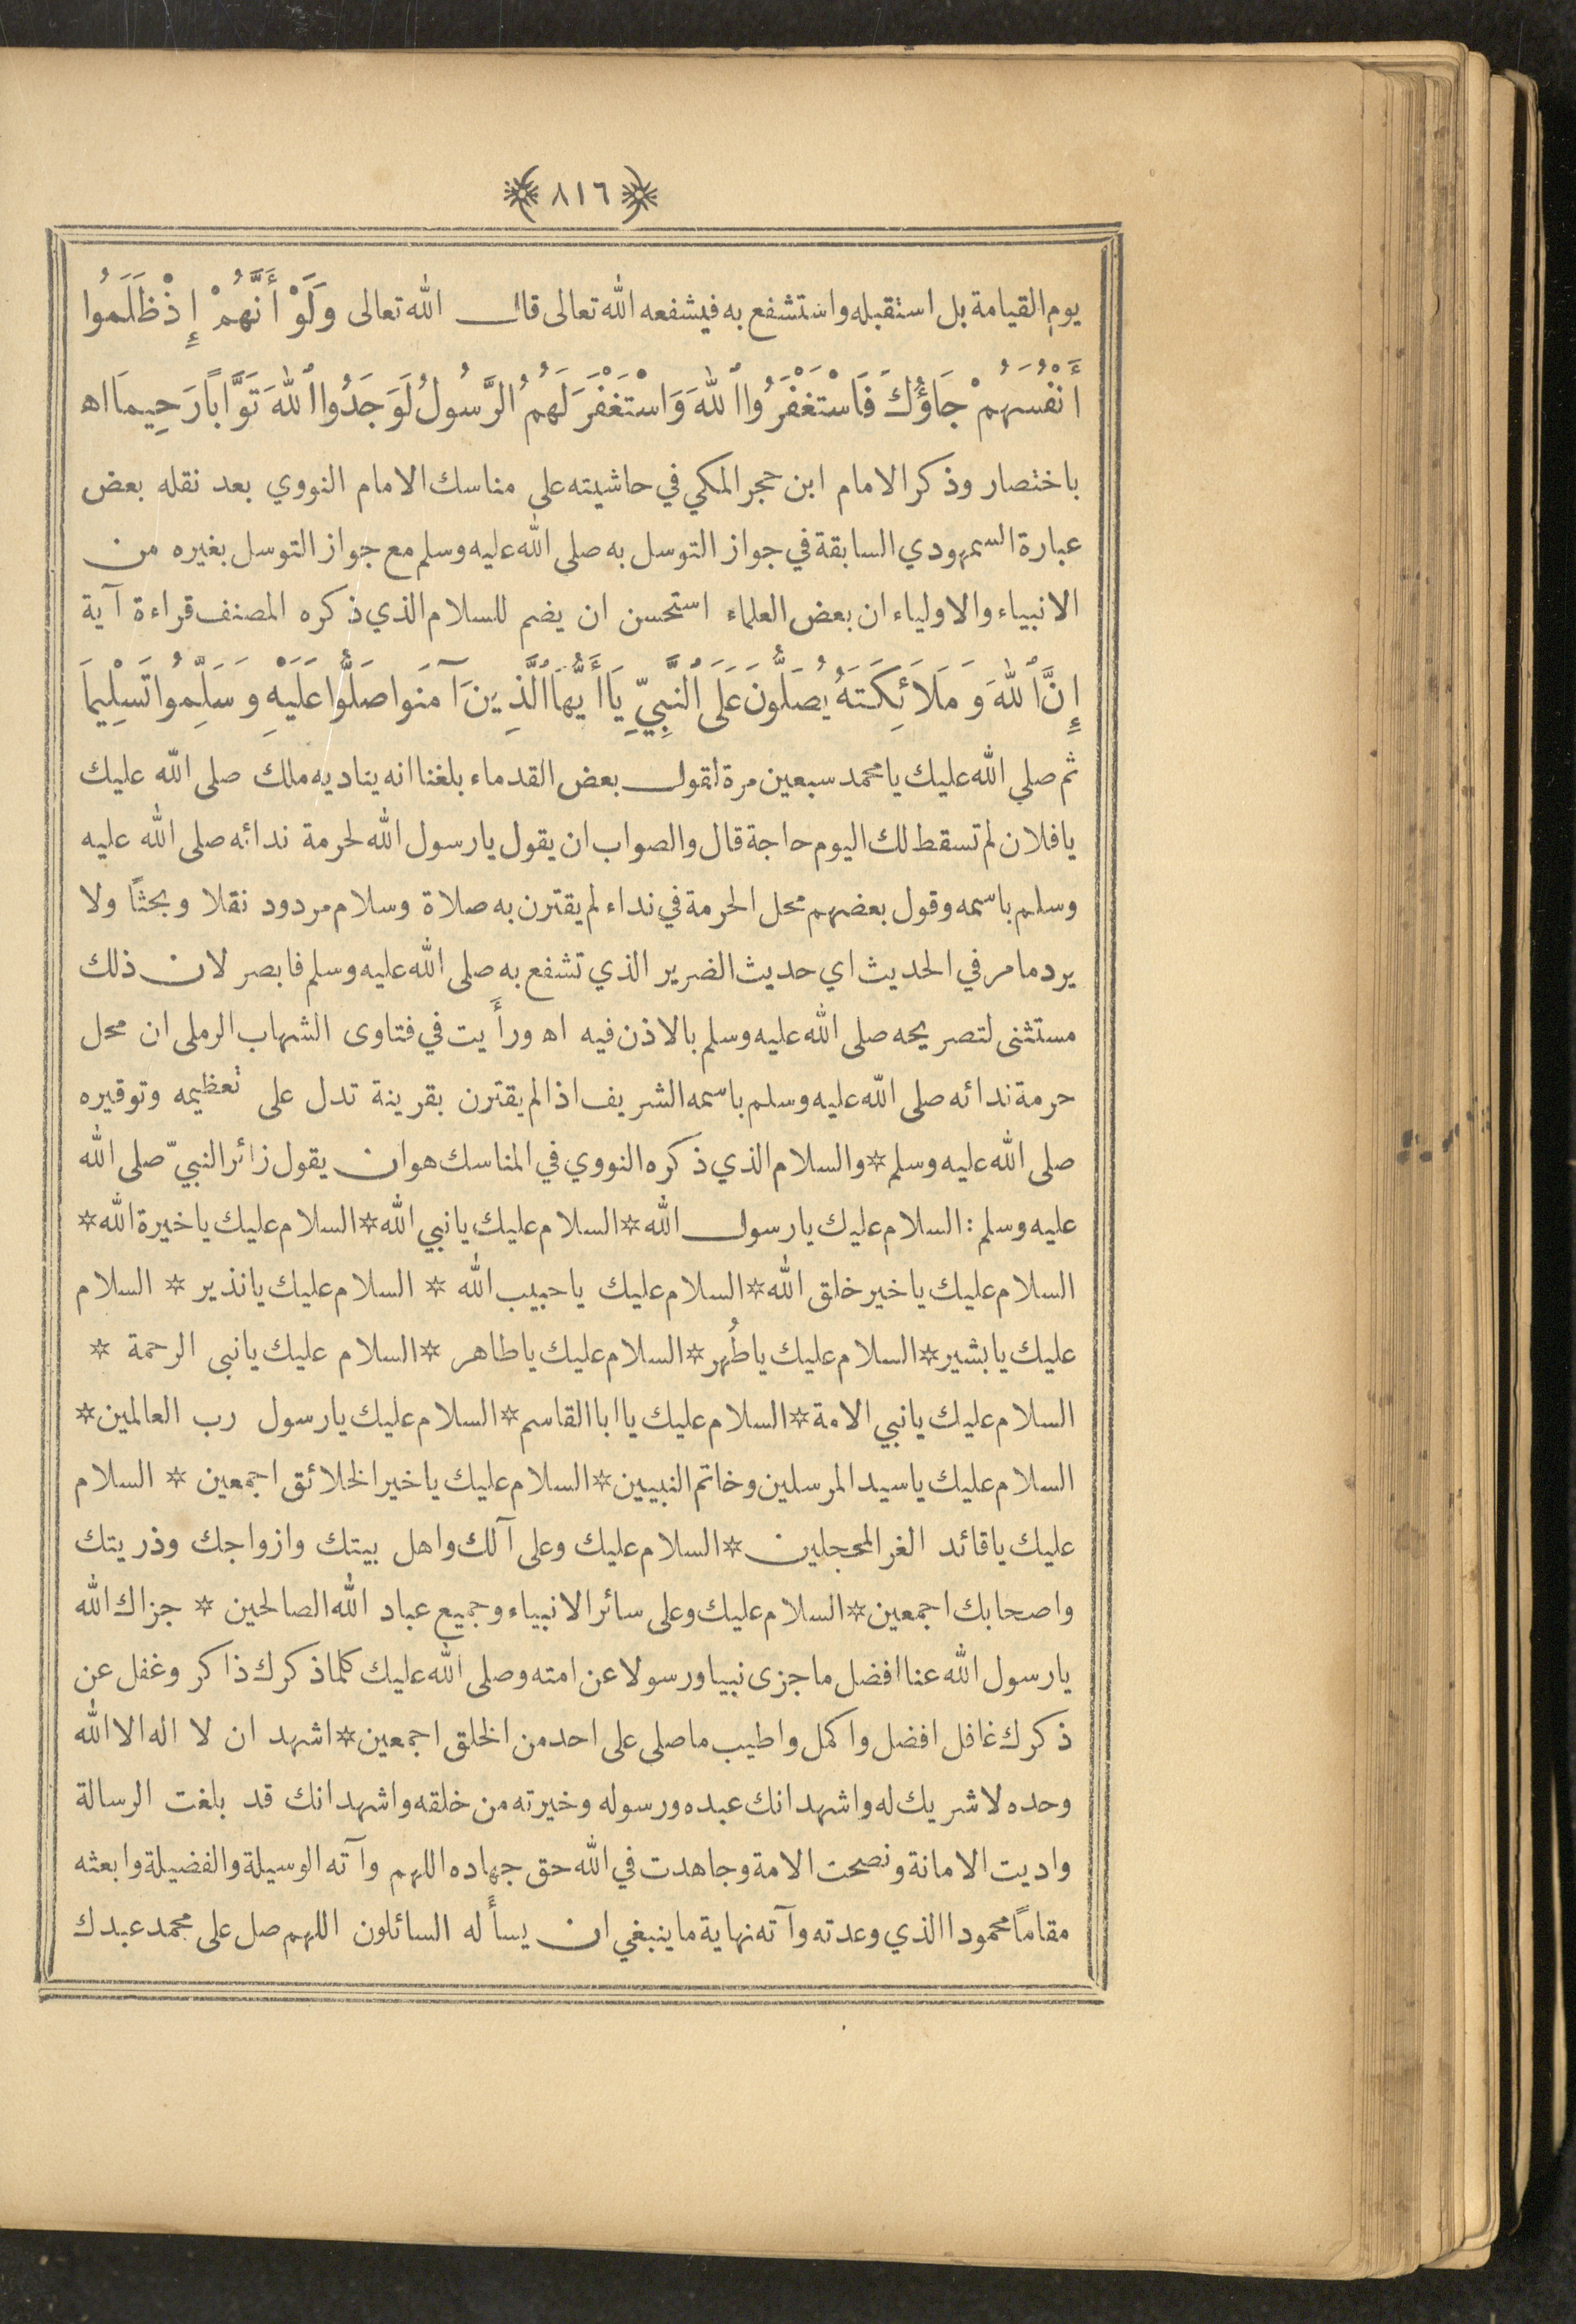 ٨١٦
يوم القيامة بل استقبله واستشفع به فيشفعه الله تعالى قال الله تعالى وَلَوْ أَنَّهُمْ إِذْ ظَلَمُوا
أَنْفُسَهُمْ جَاؤُكَ فَاسْتَغْفَرُوا اللهَ وَاسْتَغْفَرَ لَهُمُ الرَّسُولُ لَوَجَدُوا اللهَ تَوَّابًا رَحِيمًا اهـ
باختصار وذكر الامام ابن حجر المكي في حاشيته على مناسك الامام النووي بعد نقله بعض
عبارة السمهودي السابقة في جواز التوسل به صلى الله عليه وسلم مع جواز التوسل بغيره من
الانبياء والاولياء ان بعض العلماء استحسن ان يضم للسلام الذي ذكره المصنف قراءة آية
إِنَّ اللهَ وَمَلَائِكَتَهُ يُصَلُّونَ عَلَى النَّبِيِّ يَا أَيُّهَا الَّذِينَ آمَنُوا صَلُّوا عَلَيْهِ وَسَلِّمُوا تَسْلِيمًا
ثم صلى الله عليك يا محمد سبعين مرة لقول بعض القدماء بلغنا انه يناديه ملك صلى الله عليك
يا فلان لم تسقط لك اليوم حاجة قال والصواب ان يقول يا رسول الله لحرمة ندائه صلى الله عليه
وسلم باسمه وقول بعضهم محل الحرمة في نداء لم يقترن به صلاة وسلام مردود نقلا وبحثًا ولا
يرد ما مر في الحديث اي حديث الضرير الذي تشفع به صلى الله عليه وسلم فابصر لان ذلك
مستثنى لتصريحه صلى الله عليه وسلم بالاذن فيه اهـ ورأيت في فتاوى الشهاب الرملى ان محل
حرمة ندائه صلى الله عليه وسلم باسمه الشريف اذا لم يقترن بقرينة تدل على تعظيمه وتوقيره
صلى الله عليه وسلم * والسلام الذي ذكره النووي في المناسك هو ان يقول زائر النبيّ صلى الله
عليه وسلم : السلام عليك يا رسول الله * السلام عليك يا نبي الله * السلام عليك يا خيرة الله *
السلام عليك يا خير خلق الله * السلام عليك يا حبيب الله * السلام عليك يا نذير * السلام
عليك يا بشير * السلام عليك يا طُهر * السلام عليك يا طاهر * السلام عليك يا نبى الرحمة *
السلام عليك يا نبي الامة * السلام عليك يا ابا القاسم * السلام عليك يا رسول رب العالمين *
السلام عليك يا سيد المرسلين وخاتم النبيين * السلام عليك يا خير الخلائق اجمعين * السلام
عليك يا قائد الغر المحجلين * السلام عليك وعلى آلك واهل بيتك وازواجك وذريتك
واصحابك اجمعين * السلام عليك وعلى سائر الانبياء وجميع عباد الله الصالحين * جزاك الله
يا رسول الله عنا افضل ما جزى نبيا ورسولا عن امته وصلى الله عليك كلما ذكرك ذاكر وغفل عن
ذكرك غافل افضل واكمل واطيب ما صلى على احد من الخلق اجمعين * اشهد ان لا اله الا الله
وحده لا شريك له واشهد انك عبده ورسوله وخيرته من خلقه واشهد انك قد بلغت الرسالة
واديت الامانة ونصحت الامة وجاهدت في الله حق جهاده اللهم وآته الوسيلة والفضيلة وابعثه
مقامًا محمودا الذي وعدته وآته نهاية ما ينبغي ان يسأله السائلون اللهم صل على محمد عبدك